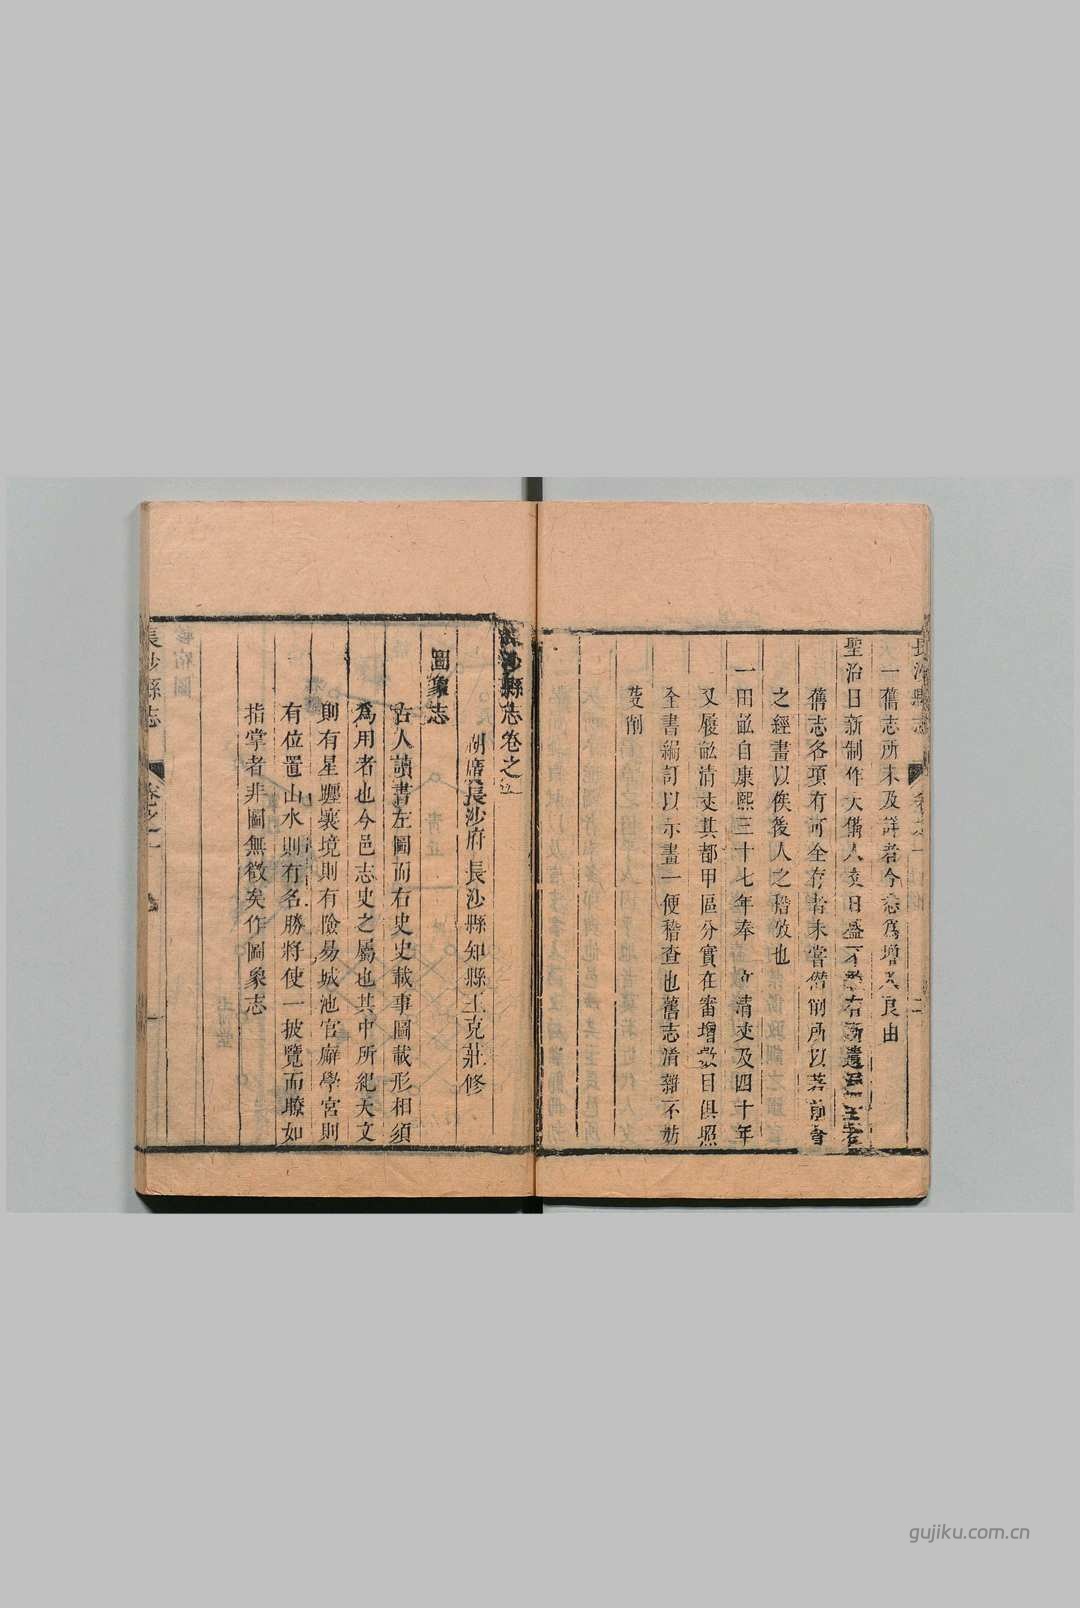 一舊志所未及詳者今悉爲增入良由
聖治日新制作大備人文日盛不
舊志各項有可全存者未嘗僭削所以著前
之經畫以俟後人之稽攷也
一田畝自康熙三十七年奉 清丈及四十年
又履畝清丈其都甲區分實在審增數目俱照
全書編訂以示畫一便稽查也舊志淆雜不妨
芟削
長沙縣志卷之
湖廣長沙府長沙縣知縣王克莊修
圖象志
古人讀書左圖而右史史載事圖載形相須
爲用者也今邑志史之屬也其中所紀天文
則有星壥襄境則有險易城池官廨學宮則
有位置山水則有名勝將使一披覽而瞭如
指掌者非圖無徵矣作圖象志
長沙縣志 卷之一 一
gujiku.com.cn